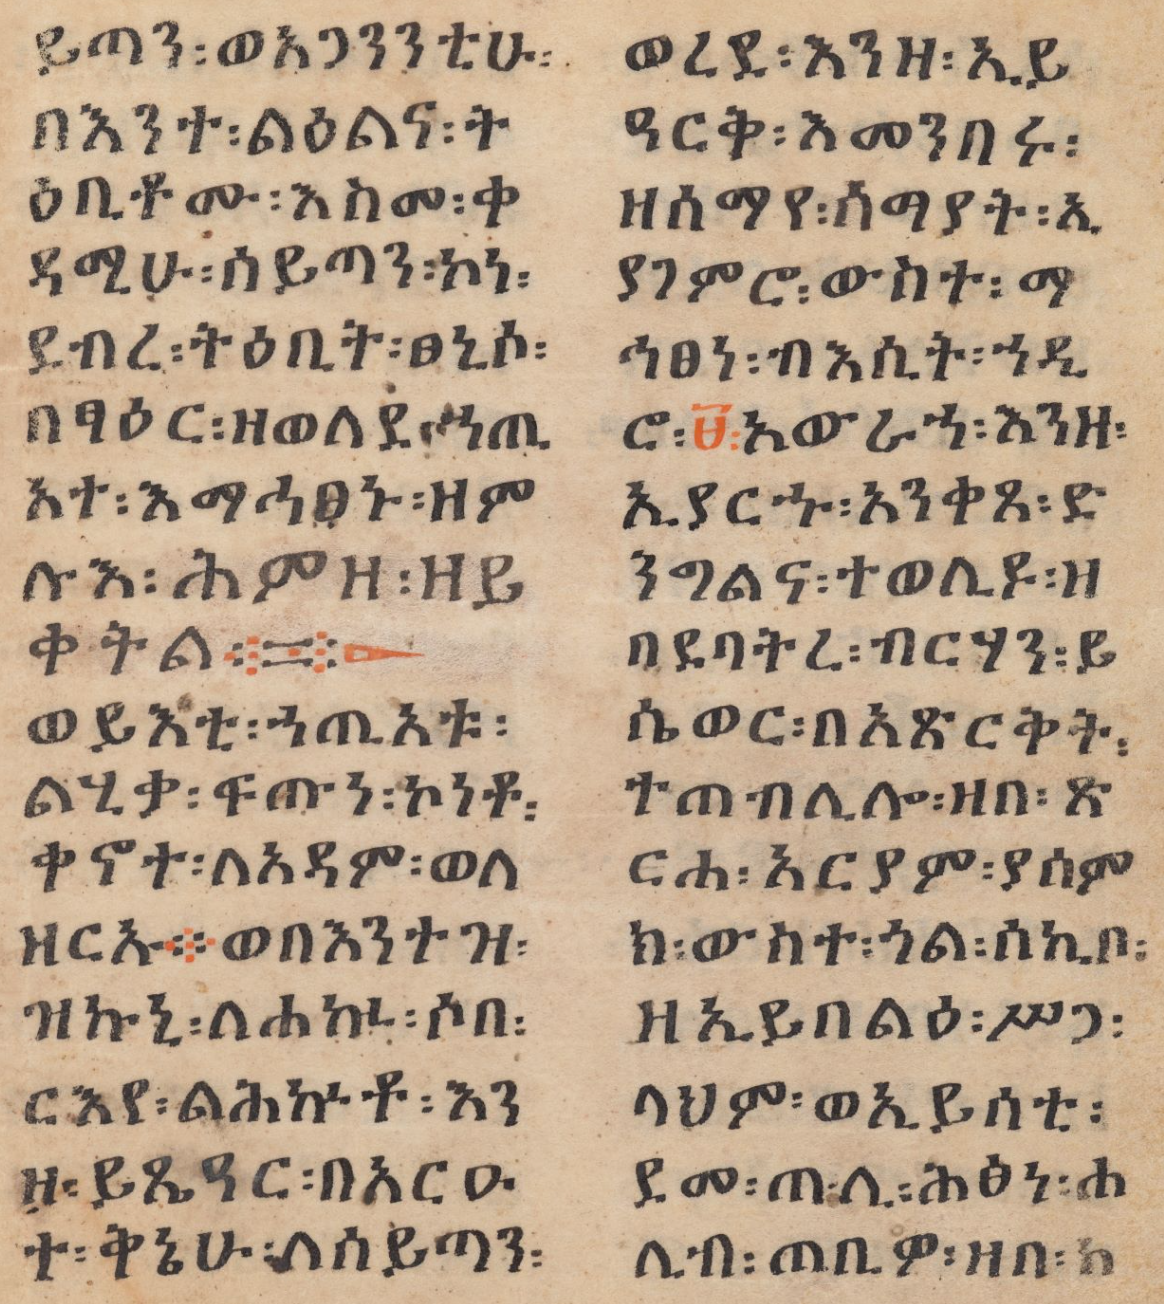 ይጣን፡ወእጋንንቲሁ፡
በእንተ፡ልዕልና፡ት
ዕቢቶሙ፡እስመ፡ቀ
ዳሚሁ፡ሰይጣን፡ኮነ፡
ደብረ፡ትዕቢት፡ፀኒሶ፡
በፃዕር፡ዘወለደ፡ኀጢ
አተ፡እማሕፀኑ፡ዘም
ሉእ፡ሕምዘ፡ዘይ
ቀትል።
ወይእቲ፡ኀጢአቱ፡
ልሂቃ፡ፍጡነ፡ኮነቶ፡
ቀኖተ፡ለአዳም፡ወለ
ዘርኡ።ወበእንተ፡ዝ፡
ዝኩኒ፡ለሐከዜ፡ሶበ፡
ርእየ፡ልሕኵቶ፡እን
ዘ፡ይጼዓር፡በአርዑ
ተ፡ቅኔሁ፡ለሰይጣን፡
ወረደ፡እንዘ፡ኢይ
ዓርቅ፡እመንበሩ፡
ዘሰማየ፡ሰማያት፡ኢ
ያገምሮ፡ውስተ፡ማ
ኅፀነ፡ብእሲት፡ኀዲ
ሮ፡፱፡አውራኀ፡እንዘ፡
ኢያርኁ፡አንቀጸ፡ድ
ንግልና፡ተወሊዶ፡ዘ
በደባትረ፡ብርሃን፡ይ
ሴወር፡በአጽርቅት፡
ተጠብሊሎ፡ዘበ፡ጽ
ርሐ፡አርያም፡ያሰም
ክ፡ውስተ፡ጎል፡ሰኪቦ፡
ዘኢይበልዕ፡ሥጋ፡
ላህም፡ወኢይሰቲ፡
ደመ፡ጠሊ፡ሕፅነ፡ሐ
ሊብ፡ጠቢዎ፡ዘበ፡ከ